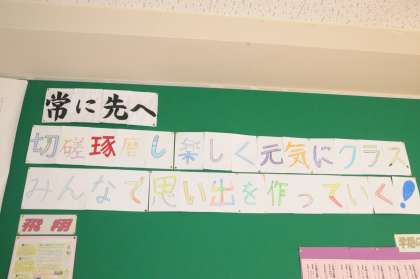 常に先へ
切磋琢磨し楽しく元気にクラス
みんなで思い出を作っていく!
飛翔